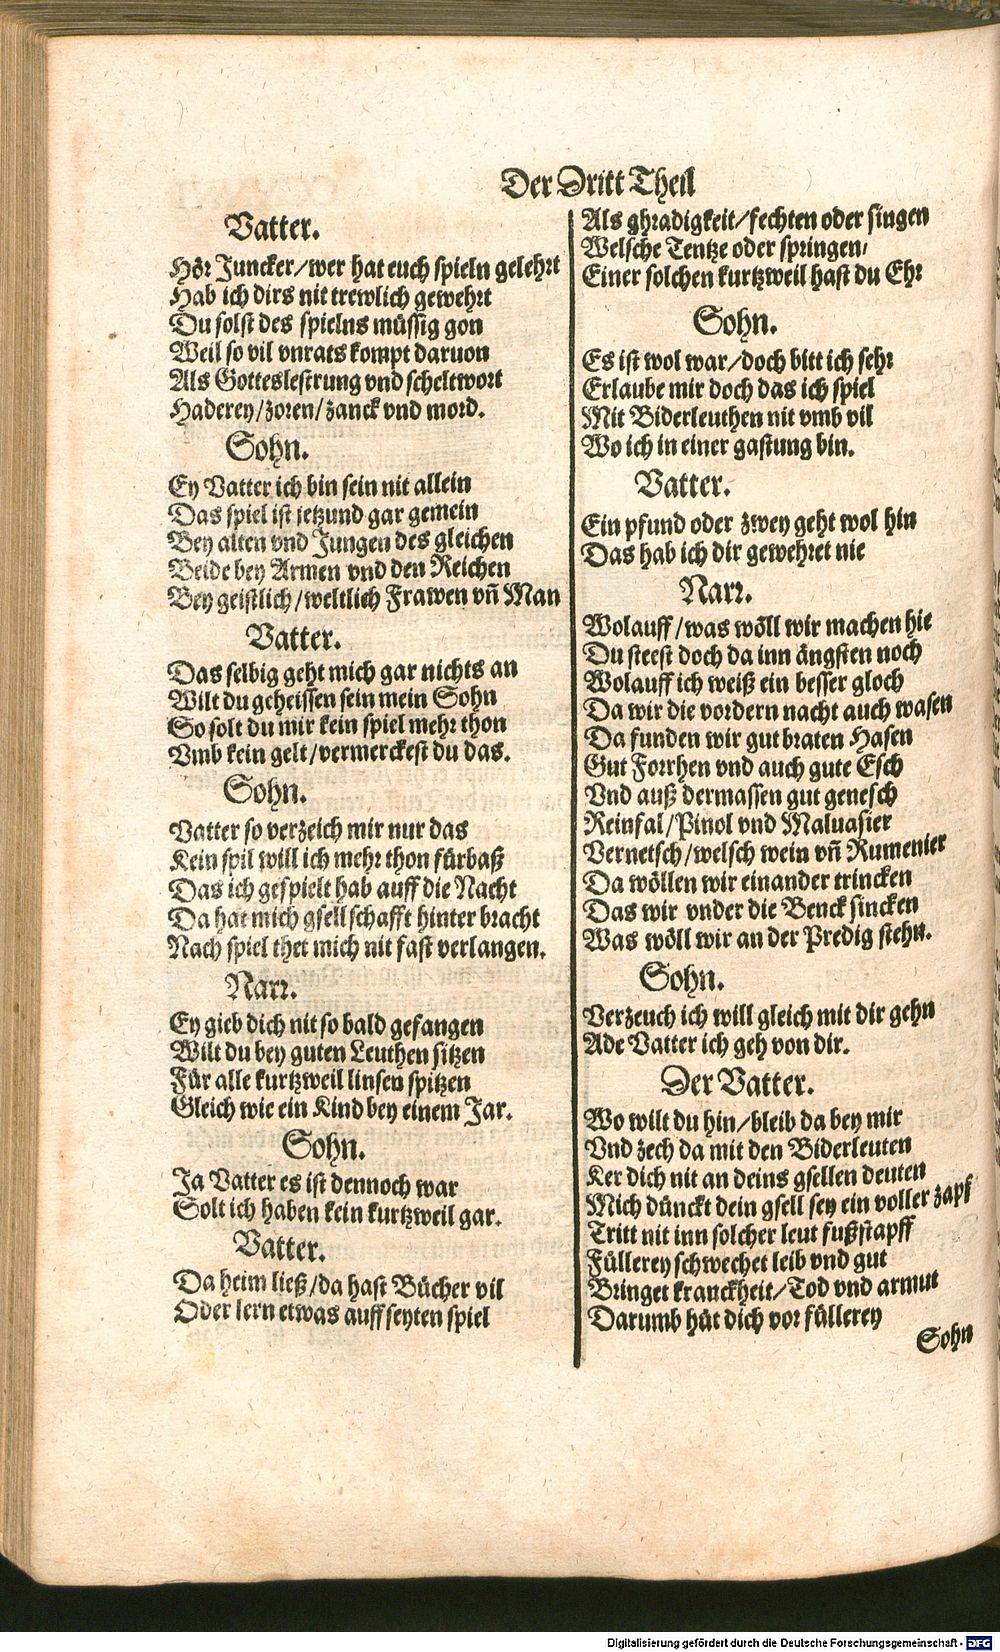 Der Dritt Theil
Vatter.
Hör Juncker/wer hat euch spieln gelehrt
Hab ich dirs nit trewlich gewehrt
Du solst des spielns müssig gon
Weil so vil vnrats kompt daruon
Als Gotteslestrung vnd scheltwort
Haderey/zoren/zanck vnd mord.
Sohn.
Ey Vatter ich bin sein nit allein
Das spiel ist jetzund gar gemein
Bey alten vnd Jungen des gleichen
Beide bey Armen vnd den Reichen
Bey geistlich/weltlich Frawen vn̄ Man
Vatter.
Das selbig geht mich gar nichts an
Wilt du geheissen sein mein Sohn
So solt du mir kein spiel mehr thon
Vmb kein gelt/vermerckest du das.
Sohn.
Vatter so verzeich mir nur das
Kein spil will ich mehr thon fürbaß
Das ich gespielt hab auff die Nacht
Da hat mich gsellschafft hinter bracht
Nach spiel thet mich nit fast verlangen.
Narr.
Ey gieb dich nit so bald gefangen
Wilt du bey guten Leuthen sitzen
Für alle kurtzweil linsen spitzen
Gleich wie ein Kind bey einem Jar.
Sohn.
Ja Vatter es ist dennoch war
Solt ich haben kein kurtzweil gar.
Vatter.
Da heim ließ/da hast Bücher vil
Oder lern etwas auff seyten spiel
Als ghradigkeit/fechten oder singen
Welsche Tentze oder springen/
Einer solchen kurtzweil hast du Ehr
Sohn.
Es ist wol war/doch bitt ich sehr
Erlaube mir doch das ich spiel
Mit Biderleuthen nit vmb vil
Wo ich in einer gastung bin.
Vatter.
Ein pfund oder zwey geht wol hin
Das hab ich dir gewehret nie
Narr.
Wolauff/was wöll wir machen hie
Du steest doch da inn ängsten noch
Wolauff ich weiß ein besser gloch
Da wir die vordern nacht auch wasen
Da funden wir gut braten Hasen
Gut Forrhen vnd auch gute Esch
Vnd auß dermassen gut genesch
Reinfal/Pinol vnd Maluasier
Vernetsch/welsch wein vn̄ Rumenier
Da wöllen wir einander trincken
Das wir vnder die Benck sincken
Was wöll wir an der Predig stehn.
Sohn.
Verzeuch ich will gleich mit dir gehn
Ade Vatter ich geh von dir.
Der Vatter.
Wo wilt du hin/bleib da bey mir
Vnd zech da mit den Biderleuten
Ker dich nit an deins gsellen deuten
Mich dünckt dein gsell sey ein voller zapf
Tritt nit inn solcher leut fußstapff
Füllerey schwechet leib vnd gut
Bringet kranckheit/Tod vnd armut
Darumb hüt dich vor füllerey
Sohn
Digitalisierung gefördert durch die Deutsche Forschungsgemeinschaft - DFG